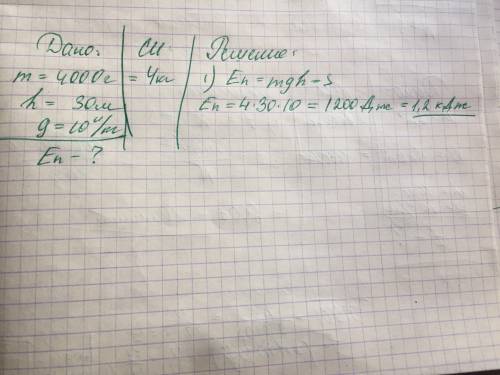 Дано:
m = 4000г
h = 30м
g = 10 н/кг
Eп - ?
СИ:
= 4кг
Решение:
1) Eп = mgh - S
Eп = 4·30·10 = 1200 Дж = 1,2 кДж